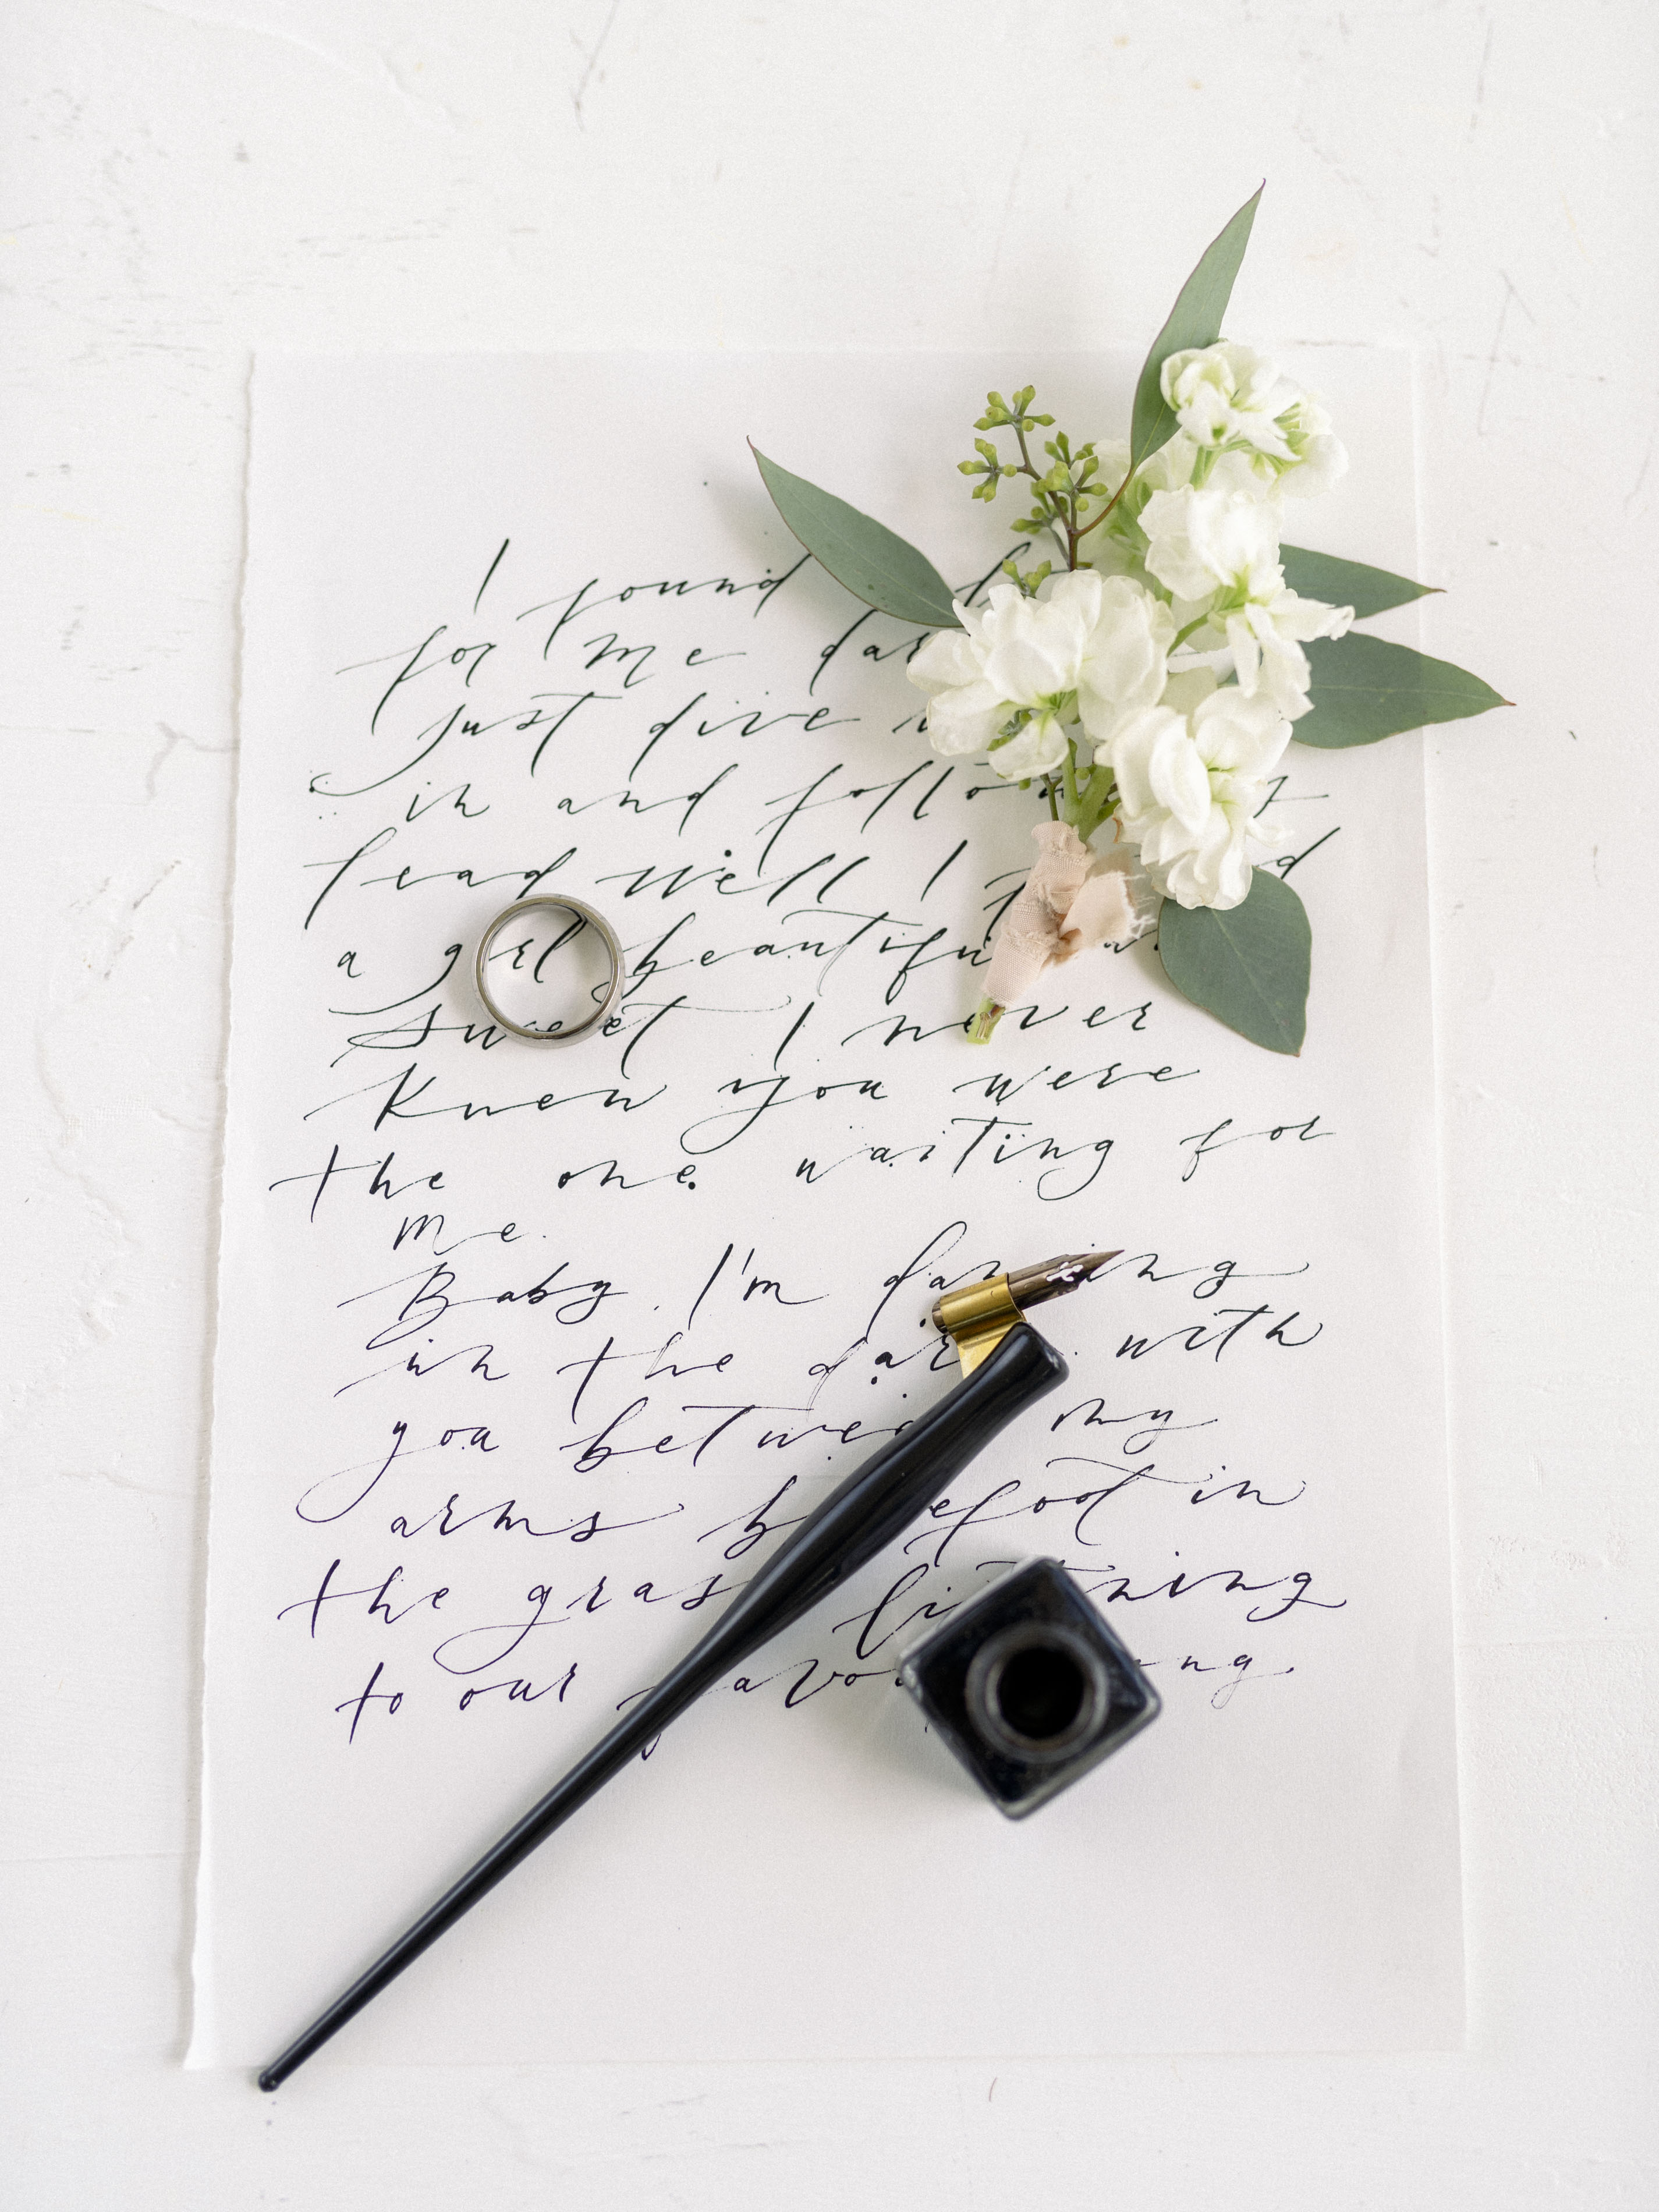 I found
for me
just dive
in and follow
lead well I
a girl beautiful
Sweet I never
Knew you were
the one waiting for
me.
Baby I'm dancing
in the dark with
you between my
arms barefoot in
the grass listening
to our favorite song.